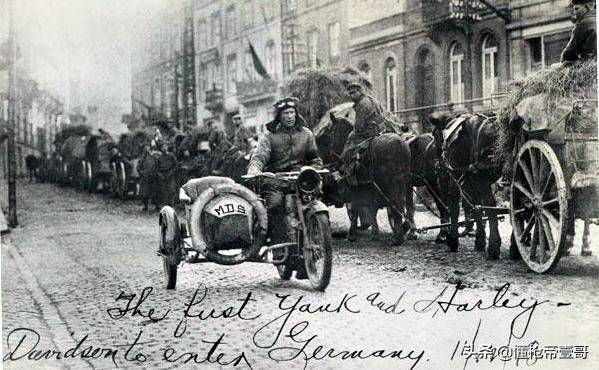 MDS
The first Yank and Harley-
Davidson to enter Germany. 11/12/18
头条@懂枪帝壹哥